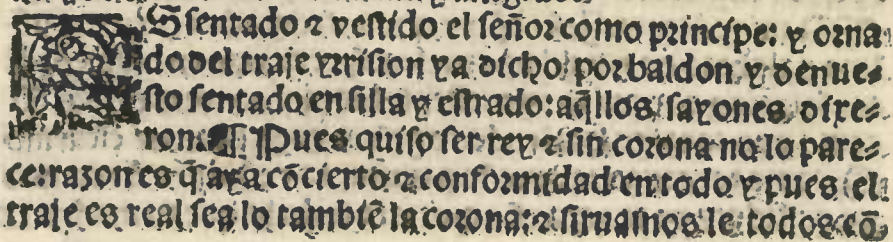 Assentado ⁊ vestido el señor como principe: y orna
do del traje yrrision ya dicho por baldon y denue-
sto sentado en silla y estrado: aq̃llos sayones dixe-
ron. ¶ Pues quiso ser rey ⁊ sin corona no lo pare-
ce: razon es q̃ aya cõcierto ⁊ conformidad en todo y pues el
traje es real sea lo tambiẽ la corona: ⁊ siruamos le todos cõ